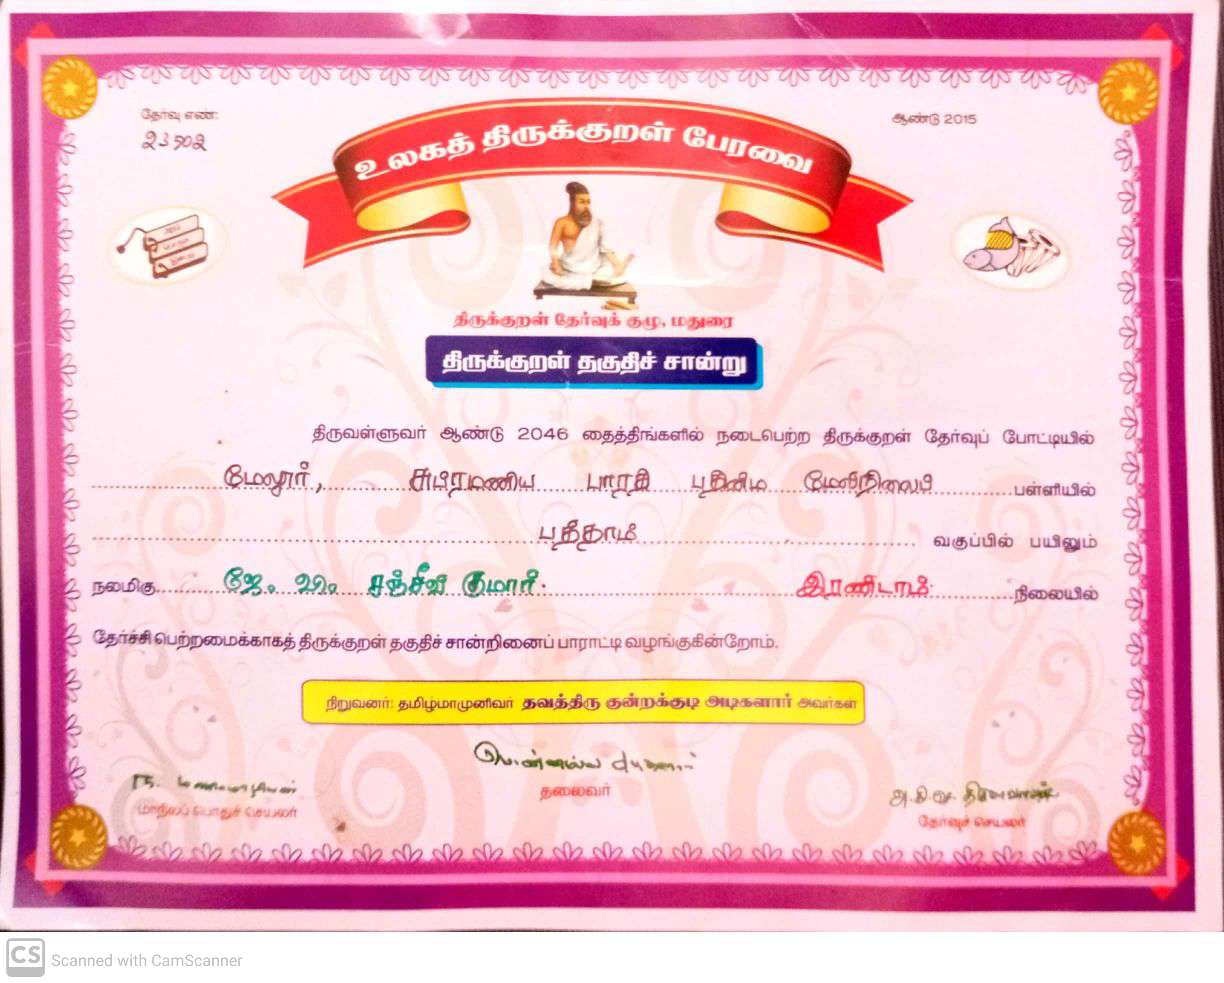 தேர்வு எண்:
23502
ஆண்டு 2015
உலகத் திருக்குறள் பேரவை
திருக்குறள் தேர்வுக் குழு, மதுரை
திருக்குறள் தகுதிச் சான்று
திருவள்ளுவர் ஆண்டு 2046 தைத்திங்களில் நடைபெற்ற திருக்குறள் தேர்வுப் போட்டியில்
மேலூர், சுப்ரமணிய பாரதி மேல்நிலைப் பள்ளியில்
பத்தாம் வகுப்பில் பயிலும்
நலமிகு ஜே. குமார் இரண்டாம் நிலையில்
தேர்ச்சி பெற்றமைக்காகத் திருக்குறள் தகுதிச் சான்றினைப் பாராட்டி வழங்குகின்றோம்.
நிறுவனர்: தமிழ்மாமுனிவர் தவத்திரு குன்றக்குடி அடிகளார் அவர்கள்
தலைவர்
மாநிலப் பொதுச் செயலர்
தேர்வுச் செயலர்
CS Scanned with CamScanner